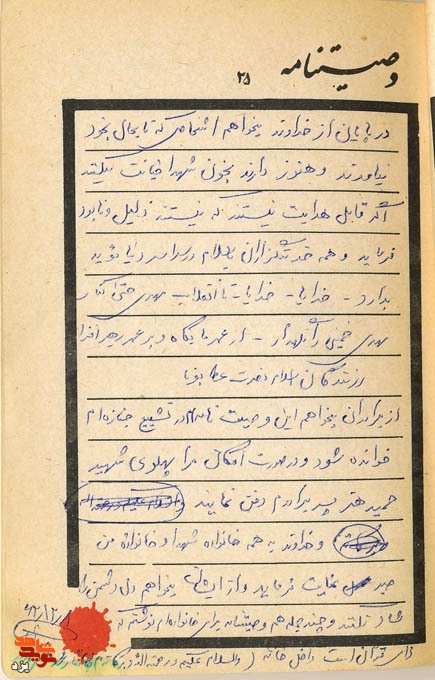 وصیتنامه
۲۵
در پایان از خداوند میخواهم اشخاصی که تا بحال بخود
نیامدند و هنوز دارند بخون شهدا خیانت میکنند
اگر قابل هدایت نیستند که نیستند ذلیل و نابود
فرماید و همه خدمتگزاران باسلام در سراسر دنیا مؤید
بدارد - خدایا - خدایا تا انقلاب مهدی حتی کنار
مهدی خمینی را نگهدار - از عمر ما بکاه و بر عمر رهبر افزا
رزمندگان اسلام نصرت عطا بفرما
از برادران میخواهم این وصیت نامه ام در تشییع جنازه ام
خوانده شود و در صورت امکان مرا پهلوی شهید
حمید هنر پسر برادرم دفن نمایند
و خداوند به همه خانواده شهدا و خانواده من
صبر عنایت فرماید و از ایشان میخواهم دل دشمن را
شاد نکنند و چند جمله هم وصیتنامه برای خانواده ام نوشتم که
لای قرآن است داخل خانه (والسلام علیکم و رحمة الله و برکاته